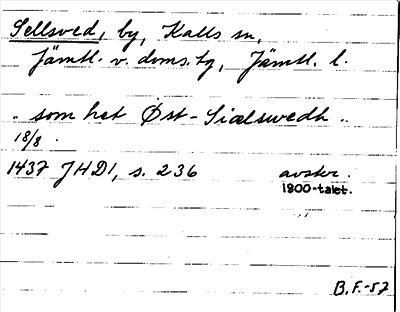 Sellsved, by, Kalls sn,
Jämtl. v. doms.tg, Jämtl. l.
.. som het Øst-Siælswedh ..
18/8.
1437 JHD1, s. 236 avskr.
1800-talet.
B.F.-57